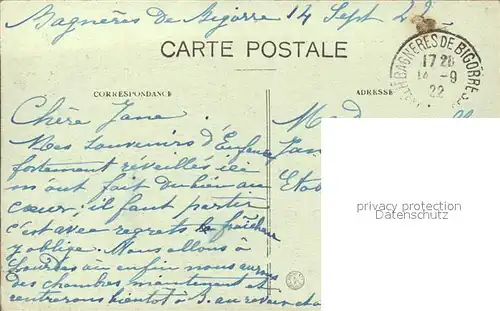 Bagnères De Bigorre 14 Sept 22
CARTE POSTALE
BAGNERES DE BIGORRE
17 20
14 - 9
22
CORRESPONDANCE
ADRESSE
Chère Jane
Mes Souvenirs d'Enfance
fortement réveillés ici
m'ont fait du bien au
cœur; il faut partir
c'est avec regrets la fraîcheur
y oblige. Nous allons à
Lourdes où enfin nous aurons
des chambres maintenant et
rentrerons bientôt à B. au revoir
privacy protection
Datenschutz